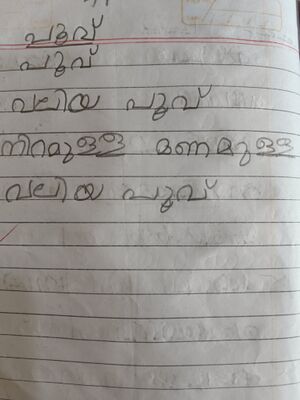 പൂവ്
പൂവ്
വലിയ പൂവ്
നിറമുള്ള മണമുള്ള
വലിയ പൂവ്